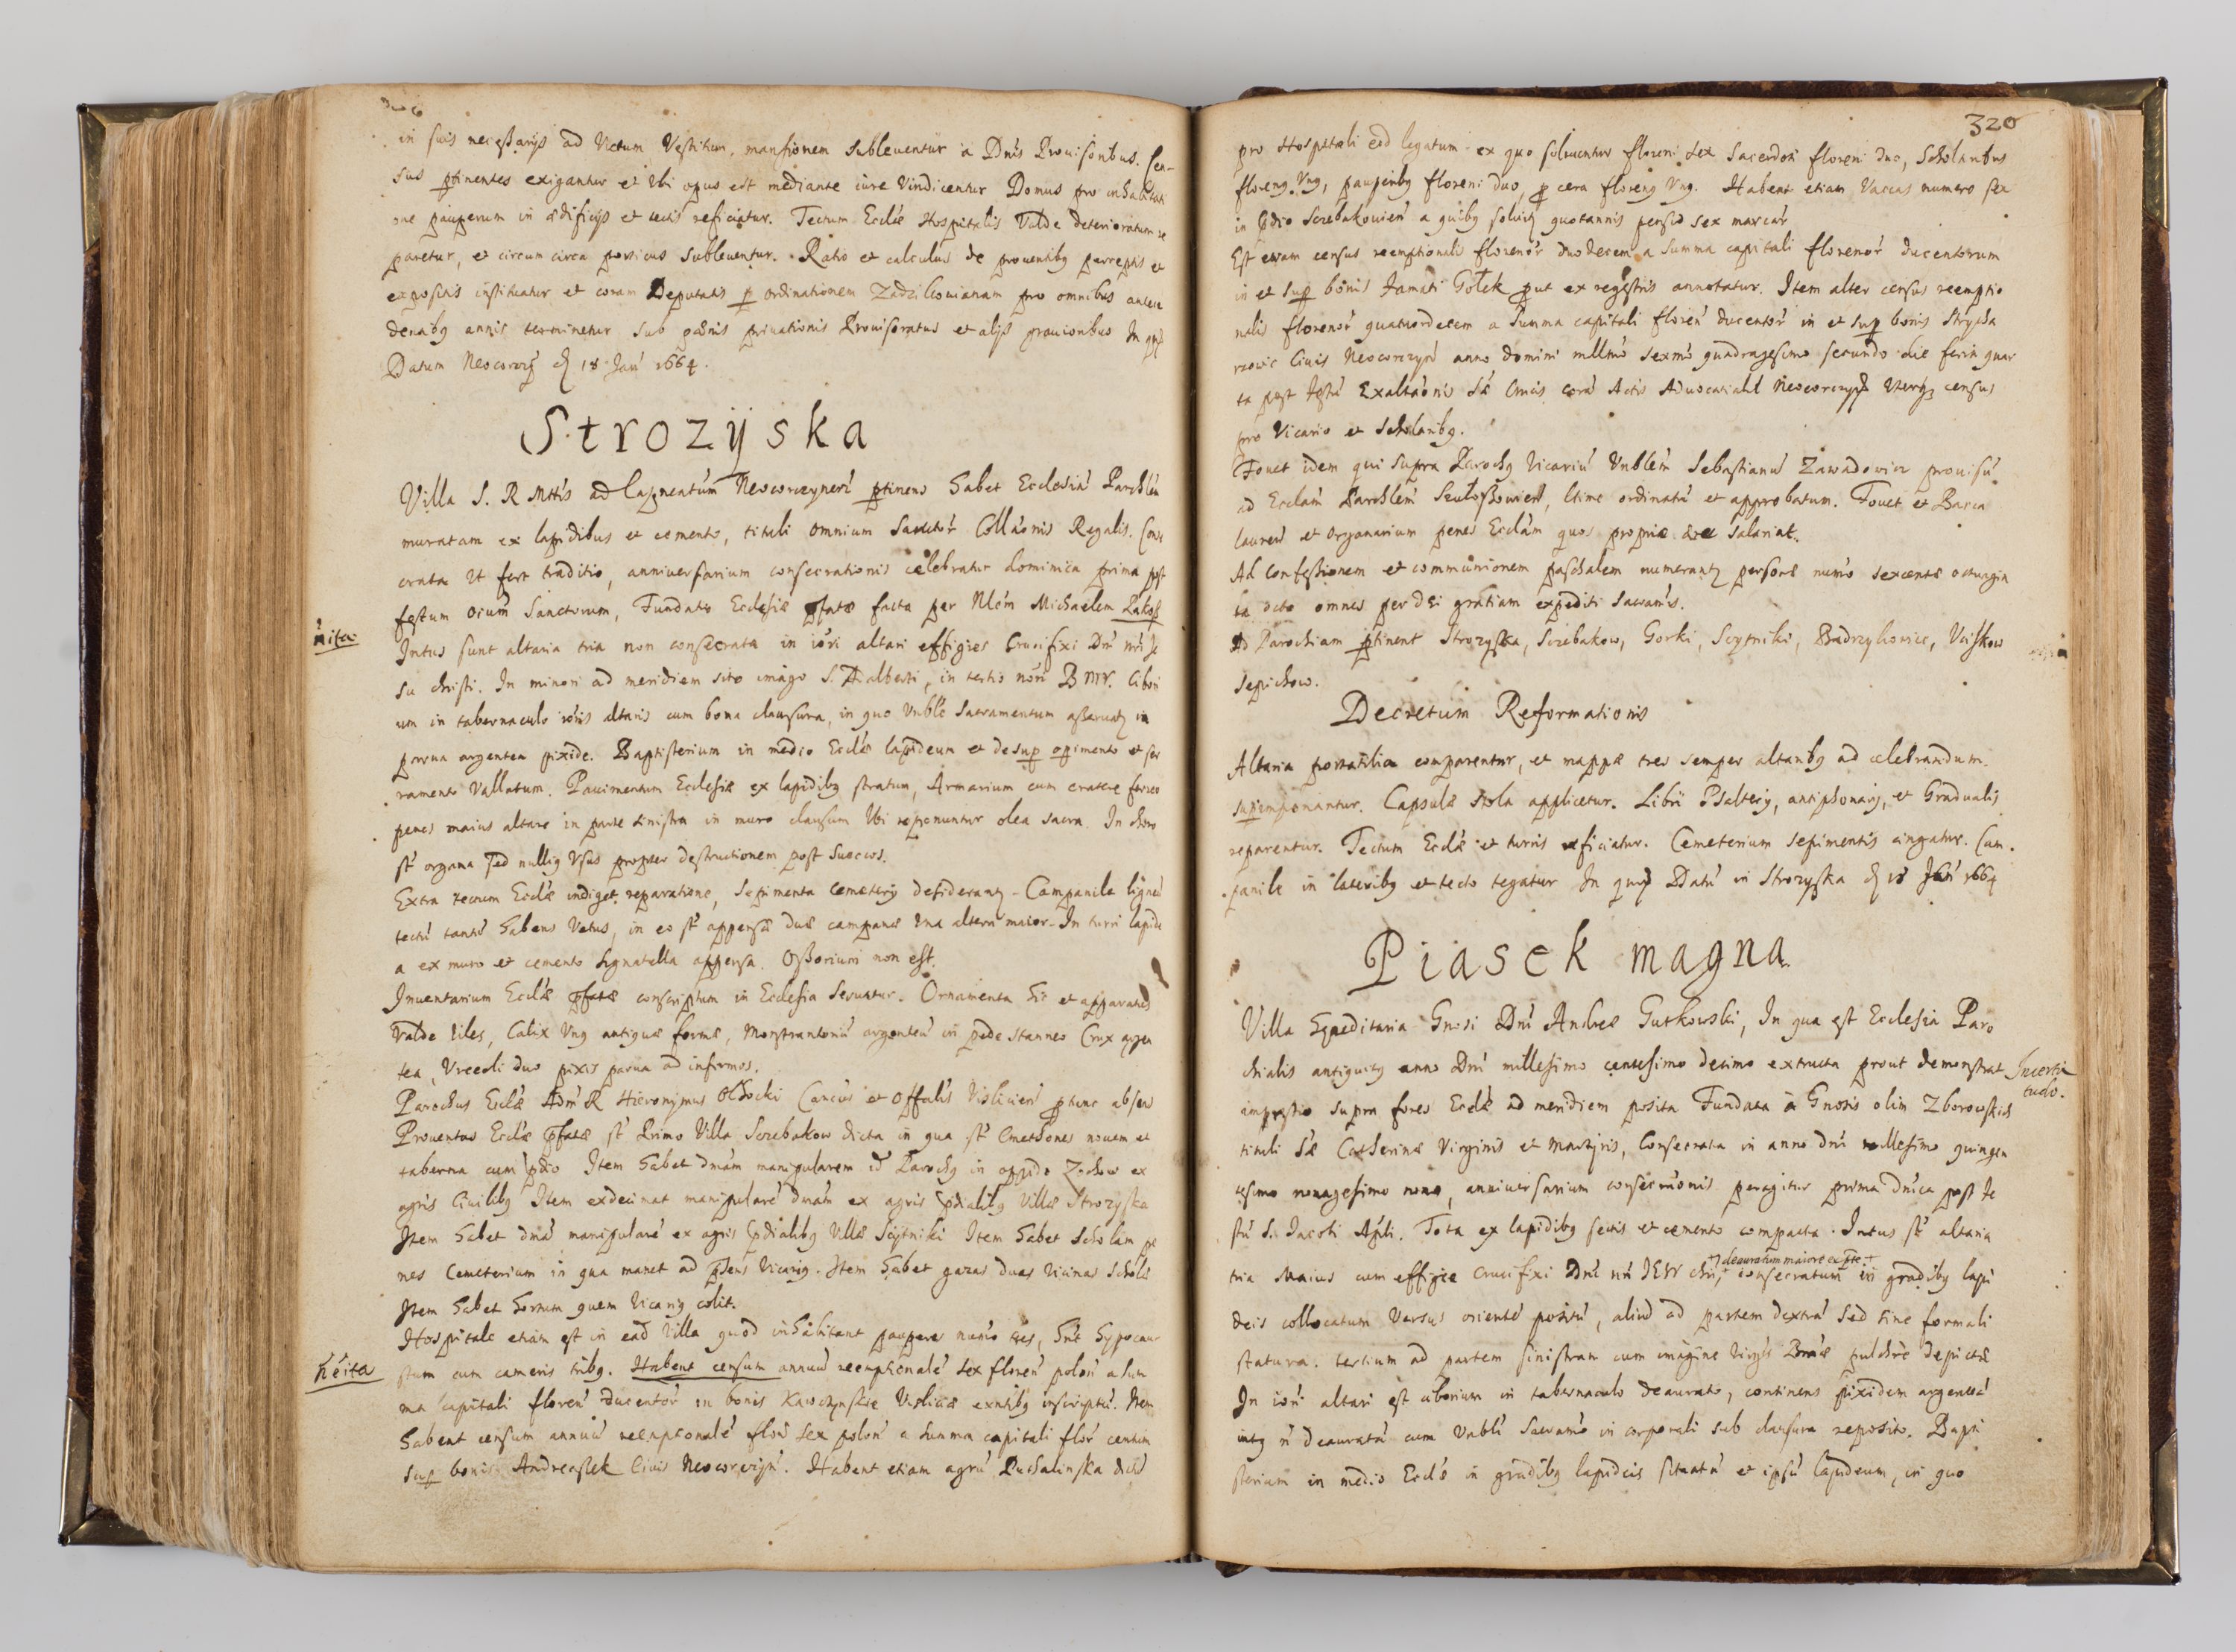 in suis necessarijs ad Victum Vestitum, mansionem subleuentur a Dnis Prouisoribus. Cen-
sus ptinentes exigantur et Vbi opus est mediante iure Vindicentur Domus pro inhabitati
one pauperum in ædificijs et tectis reficiatur. Tectum Eccłæ Hospitalis Valde deterioratum re
paretur, et circum circa porticus subleuentur. Ratio et calculus de prouentibꝫ perceptis et
expositis instituatur et coram Deputatis p ordinationem Zadzikouianam pro omnibus antece
dentibꝫ annis terminetur sub pœnis priuationis Prouisoratus et alijs grauioribus In quoꝝ
Datum Neocorcz d 18 Jan 1664.
Strozÿska
Villa S. R Mttis ad Capneatum Neocorczynen ptinens habet Ecclesia Parchlem
muratam ex lapidibus et cemento, tituli omnium Sanctor Collaonis Regalis. Cons
crata Vt fert traditio, anniuersarium consecrationis celebratur dominica prima post
festum oium Sanctorum, Fundatio Ecclesiæ pfatæ facta per Mlem Michaelem Lakoß
nita
Intus sunt altaria tria non consecrata in iori altari effigies Crucifixi Dni nri Je
su christi. In minori ad meridiem sito imago S. Adalberti, in tertio nori B MV. Cibori
um in tabernaculo ioris altaris cum bona clausura, in quo Vnble Sacramentum asseruatꝫ in
parua argentea pixide. Baptisterium in medio Eccłæ lapideum et desup opimento et fer
ramento Vallatum. Pauimentum Ecclesiæ ex lapidibꝫ stratum, Armarium cum cratere ferreo
penes maius altare in parte sinistra in muro clausum Vbi reponuntur olea sacra. In choro
st organa sed nulliꝫ Vsus propter destructionem post Suecos.
Extra tectum Eccłæ indiget reparatione, Sepimenta Cemeterij desiderantꝫ - Campanile ligneu
tectu tantu habens Vetus, in eo st appensæ duæ campanæ Vna altera maior - In turri lapide
a ex muro et cemento Signatella appensa. Ossorium non est.
Inuentarium Eccłæ pfatæ conscriptum in Ecclesia Seruatur. Ornamenta hic et apparatus
Valde Viles, Calix Vnꝫ antiquæ formæ, Monstrantoriu argenteu in pede stanneo Crux argen
tea, Vrceoli duo pixis parua ad infirmos.
Parochus Eccłæ Adm R Hieronÿmus Olßocki Cancus et Offalis Vislicien ptunc absens
Prouentus Eccłæ pfatæ st Primo Villa Sczebakow dicta in qua st Cmethones nouem et
taberna cum pdio Item habet dmam manipularem id Parochꝫ in oppido Zochow ex
agris Ciuilibꝫ Item exdecimat manipulare dmam ex agris pdialibꝫ Villæ Strozyska
Item habet dma manipulare ex agris pdialibꝫ Villæ Sczÿtniki Item habet Scholam pe
nes Cemeterium in qua manet ad psens Vicariꝫ. Item habet gazas duas Vicinas Scholæ
Item habet hortum quem Vicariꝫ colit.
Hospitale etiam est in ead Villa quod inhabitant pauperes numo tres, hnt hypocau
neita
stum cum cameris tribꝫ. Habent censum annuu reemptionale sex floren polon a sum
ma Capitali floren ducentor in bonis Kawczynskie Visliciæ exntibꝫ inscriptu. Item
habent censum annuu reemptionale flor sex polon a summa capitali flor centum
sup bonis Andreaßek Ciuis Neocorczyn. Habent etiam agru Puchalinska dictu
320
pro Hospitali eod legatum ex quo soluuntur floreni sex Sacerdoti floreni duo, Scholaribus
florenꝫ Vnꝫ, pauperibꝫ floreni duo, p cera florenꝫ Vnꝫ. Habent etiam Vaccas numero sex
in pdio Sczebakouien a quibꝫ soluitꝫ quotannis pensio sex marcar
Est etiam census reemptionalis florenor duodecem a summa capitali florenor ducentorum
in et sup bonis famati Gołek put ex regestris annotatur. Item alter census reemptio
nalis florenor quatuordecem a summa capitali floren ducentor in et sup bonis Strycha
rzowic Ciuis Neocorczyn anno domini millmo sexmo quadragesimo secundo die feria quar
ta post festu Exaltaonis Sæ Crucis cora Actis Aduocatiald Neocorczyn Vterqꝫ census
pro Vicario et Scholaribꝫ.
Fouet idem qui supra Parochꝫ Vicariu Vnblem Sebastianu Zawadowicz prouisu
ad Ecclam Parchlem Szułoszowien, ltime ordinatu et approbatum. Fouet et Bacca
laureu et Organarium penes Ecclam quos proprio ære salariat.
Ad Confessionem et communionem paschalem numerantꝫ personæ numo sexcentæ octuagin
ta octo omnes per dei gratiam expediti Sacramis.
Ad Parochiam ptinent Strozyska, Sczebakow, Gorki, Sczytniki, Badrzychowice, Uciskow
Sepichow.
Decretum Reformationis
Altaria portatilia comparentur, et mappæ tres semper altaribꝫ ad celebrandum
superimponantur. Capsulæ stola applicetur. Libri Psalteriꝫ, antiphonariꝫ, et Gradualis
reparentur. Tectum Eccłæ et turris reficiatur. Cemeterium sepimentis cingatur. Cam
panile in lateribꝫ et tecto tegatur In quoꝝ Datu in Strozyska d 18 Jan 1664
Piasek magna
Villa hæreditaria Gnosi Dni Andreæ Gutkowski, In qua est Ecclesia Paro
chialis antiquitꝫ anno Dni millesimo centesimo decimo extructa prout demonstrat
Incerti
tudo.
impressio supra fores Eccłæ ad meridiem posita Fundata a Gnosis olim Zborowskich
tituli Sæ Catherinæ Virginis et Martyris, Consecrata in anno dni millesimo quingen
tesimo nonagesimo nono, anniuersarium consecraonis peragitur prima dnica post fe
stu S. Jacobi Apli. Tota ex lapidibꝫ sectis et cemento compacta. Intus st altaria
deauratum maiore ex pte
tria Maius cum effigie Crucifixi Dni nri JESV chri, consecratum in gradibꝫ lapi
deis collocatum Versus oriente positu, aliud ad partem dextra sed sine formali
statura. tertium ad partem sinistram cum imagine Virgis Bmæ pulchre depictæ
In iori altari est ciborium in tabernaculo deaurato, continens pixidem argentea
intꝫ n deaurata cum Vnbli Sacramo in corporali sub clausura reposito. Bapti
sterium in medio Eccłæ in gradibꝫ lapideis situatu et ipsu lapideum, in quo